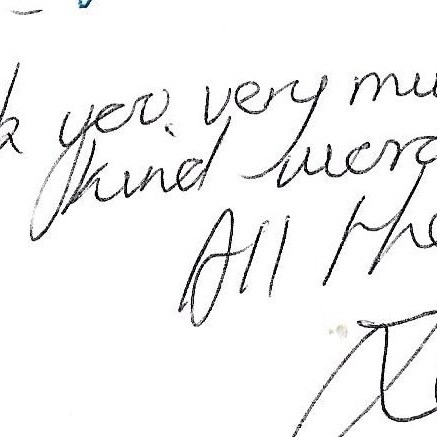 k you very mu
kind word
All the